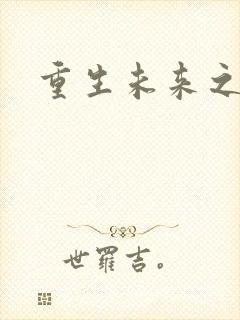 重生未来之
世羅吉。